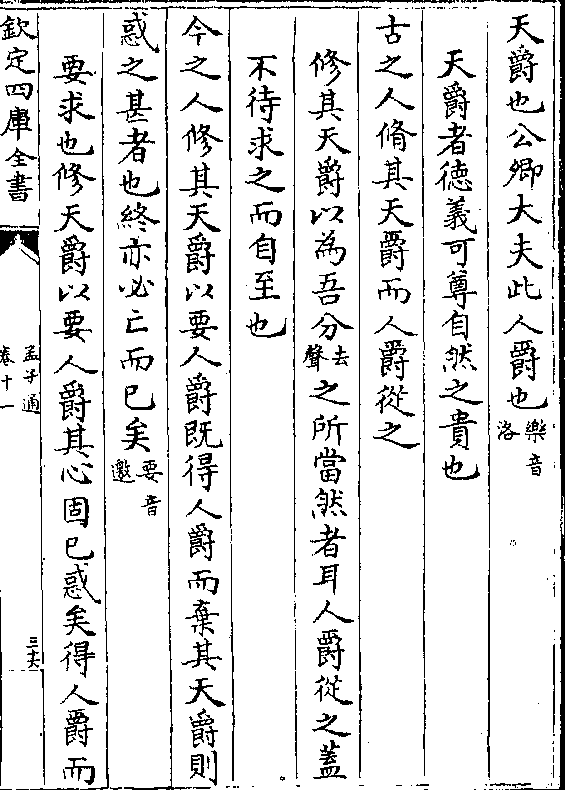 天爵也公卿大夫此人爵也樂音洛
天爵者德義可尊自然之貴也
古之人脩其天爵而人爵從之
修其天爵以為吾分去聲之所當然者耳人爵從之蓋
不待求之而自至也
今之人修其天爵以要人爵既得人爵而棄其天爵則
惑之甚者也終亦必亡而已矣要音邀
要求也修天爵以要人爵其心固已惑矣得人爵而
欽定四庫全書
孟子通
卷十一